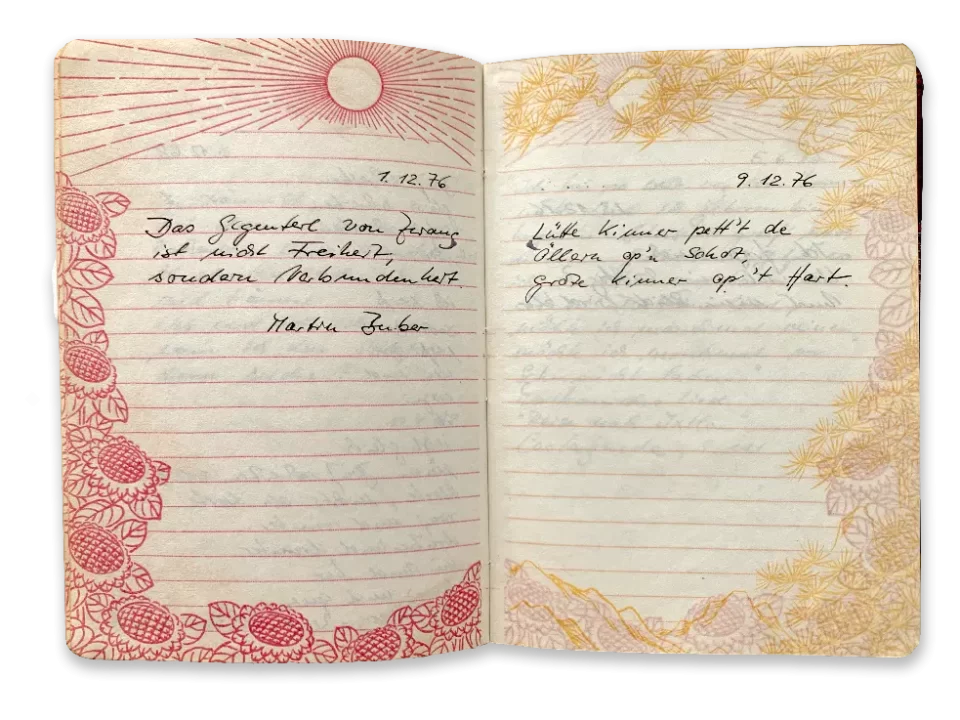 1.12.76
Das Gegenteil von Zwang
ist nicht Freiheit,
sondern Verbundenheit.
Martin Buber
9.12.76
Lütte Kinner pett't de
Öllern op'n Schot,
grote Kinner op't Hart.